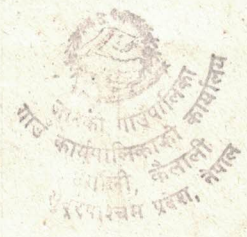 गाउँपालिका
गाउँ कार्यपालिकाको कार्यालय
कैलाली
सुदूरपश्चिम प्रदेश, नेपाल